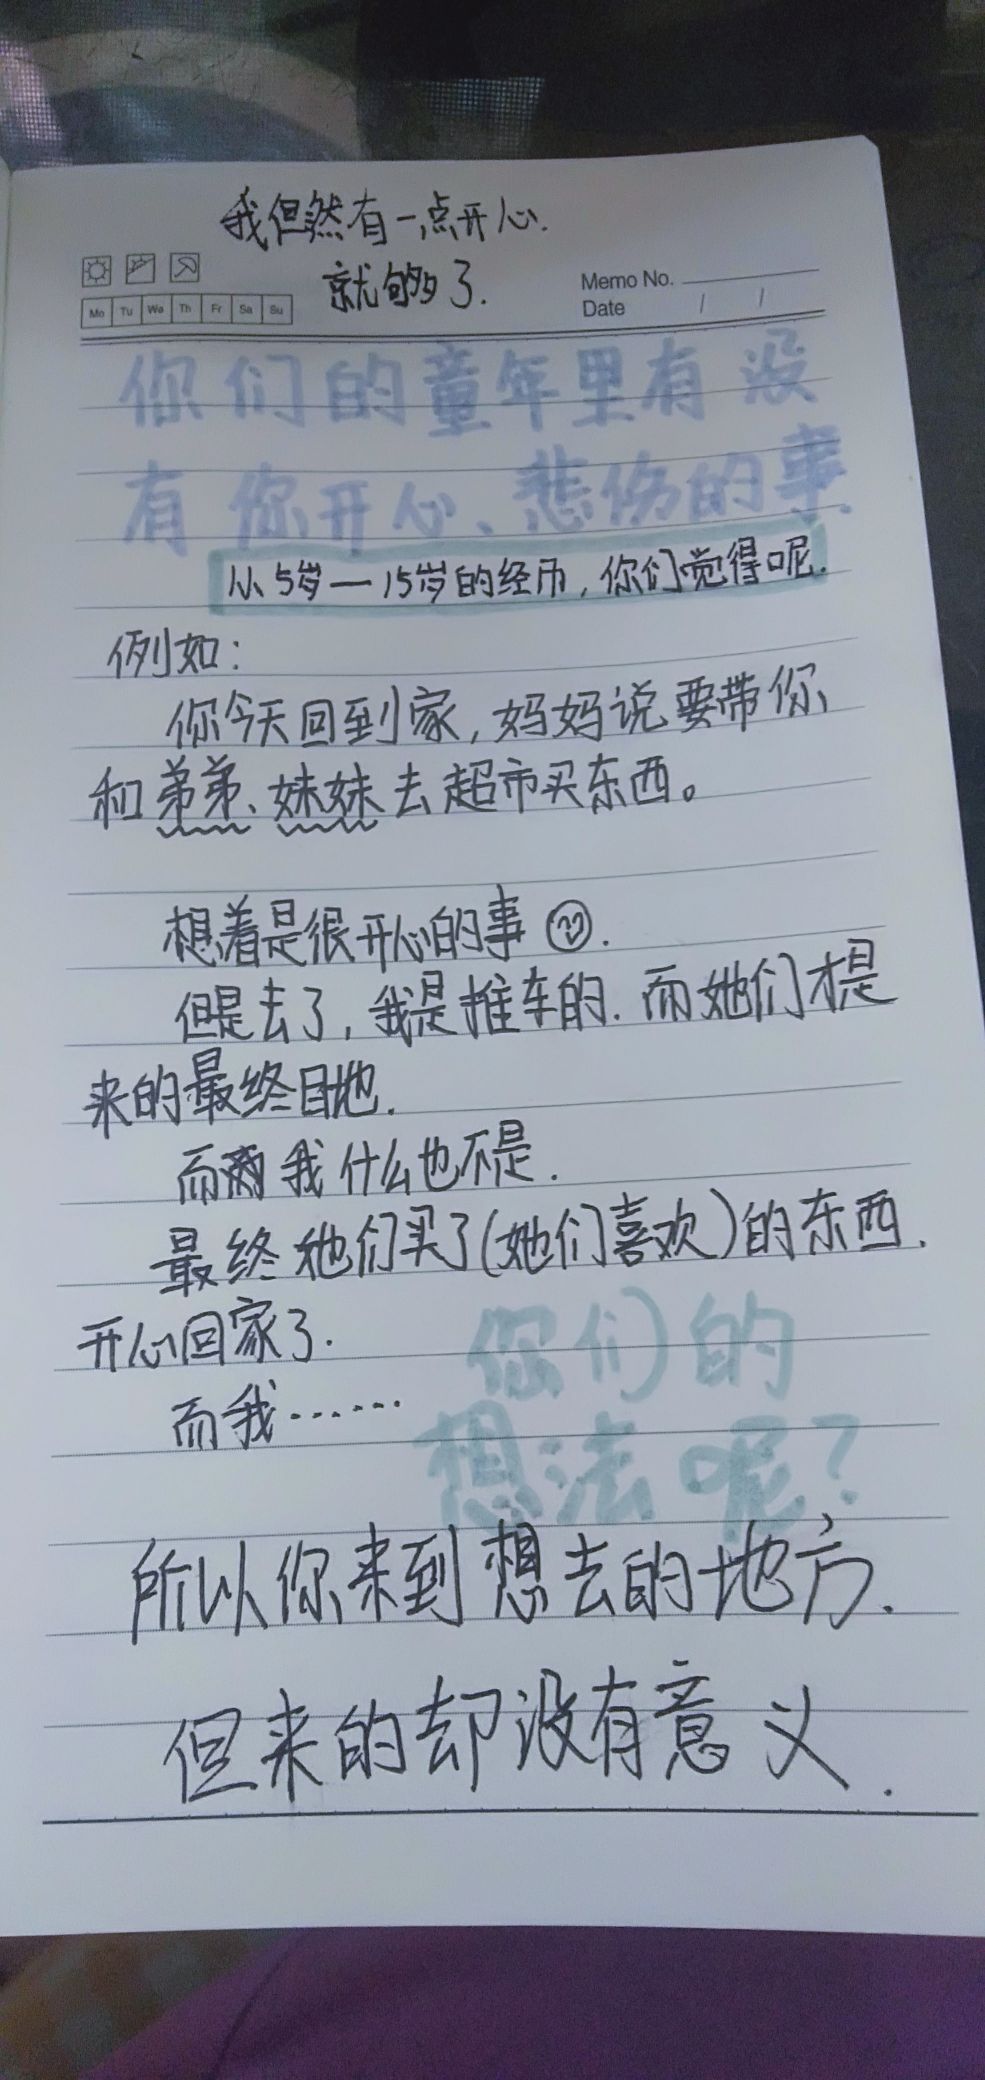 我但然有一点开心.
就够了.
Memo No.
Mo Tu We Th Fr Sa Su
Date / /
你们的童年里有没
有你开心、悲伤的事
从5岁—15岁的经历,你们觉得呢.
例如:
你今天回到家,妈妈说要带你
和弟弟、妹妹去超市买东西。
想着是很开心的事
但是去了,我是推车的.而她们才是
来的最终目地.
而我什么也不是.
最终她们买了(她们喜欢)的东西.
开心回家了.
而我……
你们的
想法呢?
所以你来到想去的地方.
但来的却没有意义.